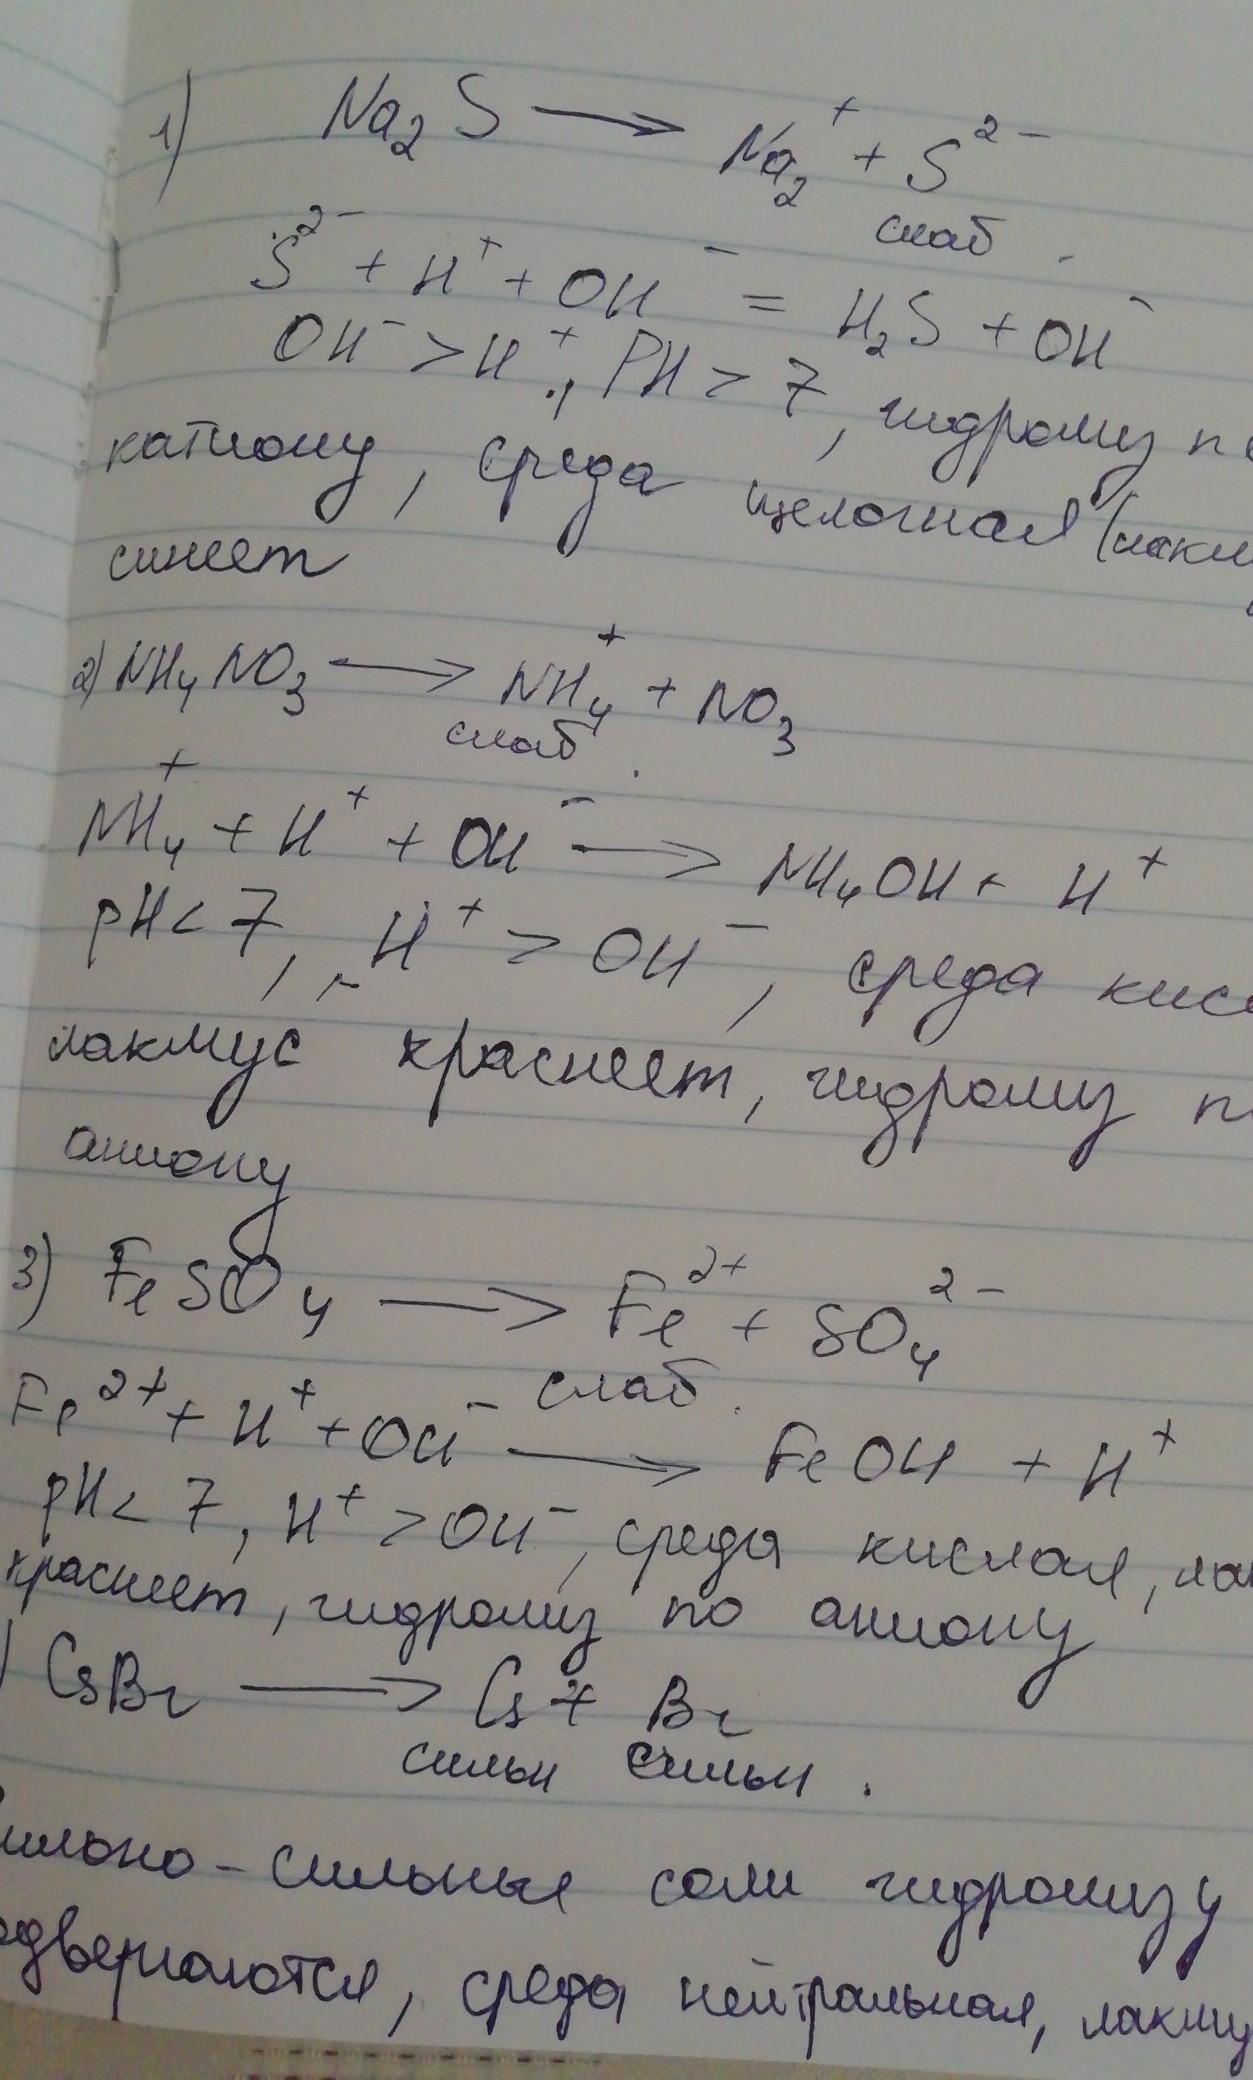 1) Na₂S → Na₂⁺ + S²⁻
слаб.
S²⁻ + H⁺ + OH⁻ = H₂S + OH⁻
OH⁻ > H⁺, PH > 7, гидролиз по
катиону, среда щелочная (лакм
синеет
2) NH₄NO₃ → NH₄⁺ + NO₃
слаб.
NH₄⁺ + H⁺ + OH⁻ → NH₄OH + H⁺
pH < 7, H⁺ > OH⁻, среда кис
лакмус краснеет, гидролиз п
аниону
3) FeSO₄ → Fe²⁺ + SO₄²⁻
слаб.
Fe²⁺ + H⁺ + OH⁻ → FeOH + H⁺
pH < 7, H⁺ > OH⁻, среда кислая, лак
краснеет, гидролиз по аниону
) CsBr → Cs + Br
сильн сильн.
ильно-сильные соли гидролизу
одвергаются, среда нейтральная, лакму